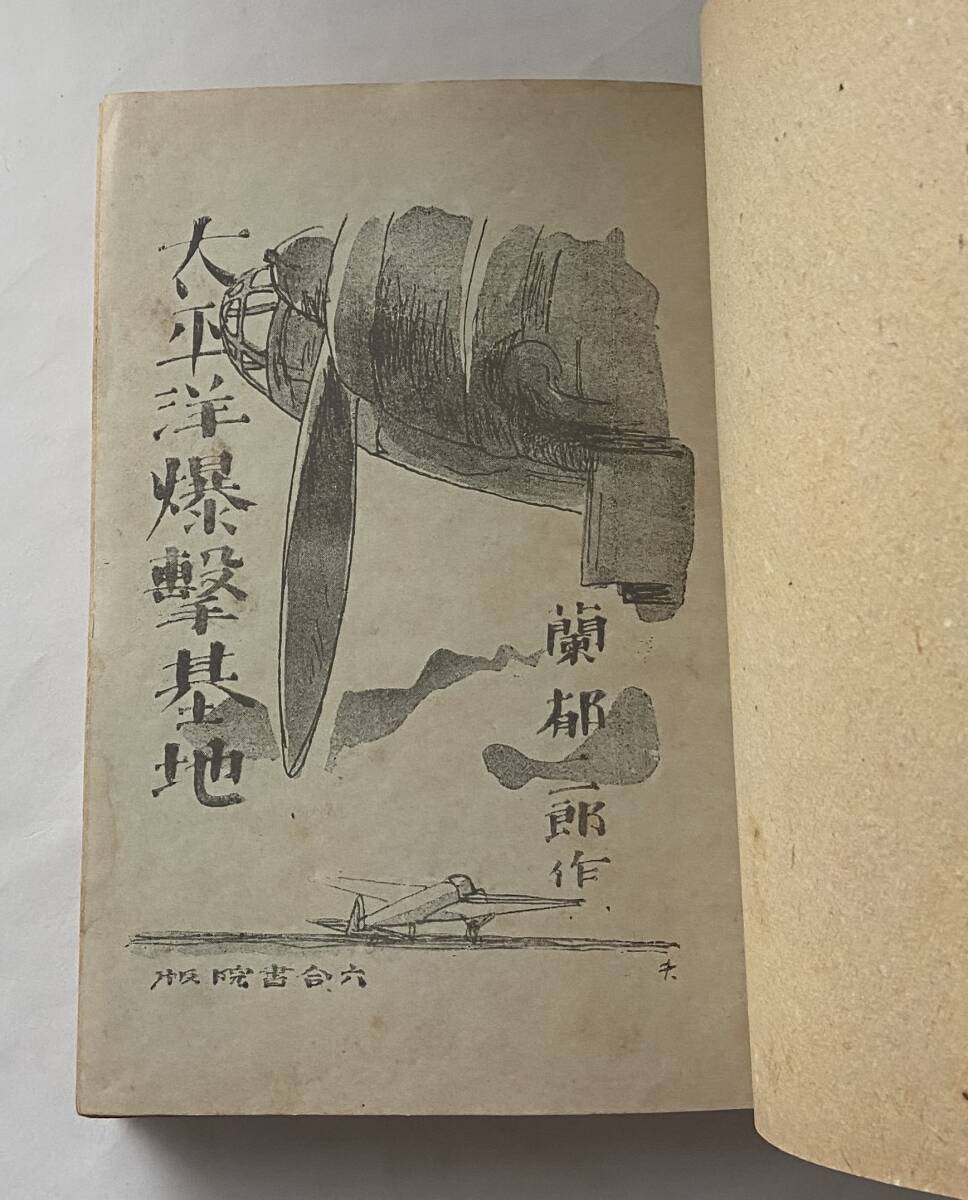 太平洋爆擊基地
蘭郁二郎作
六合書院版
夫